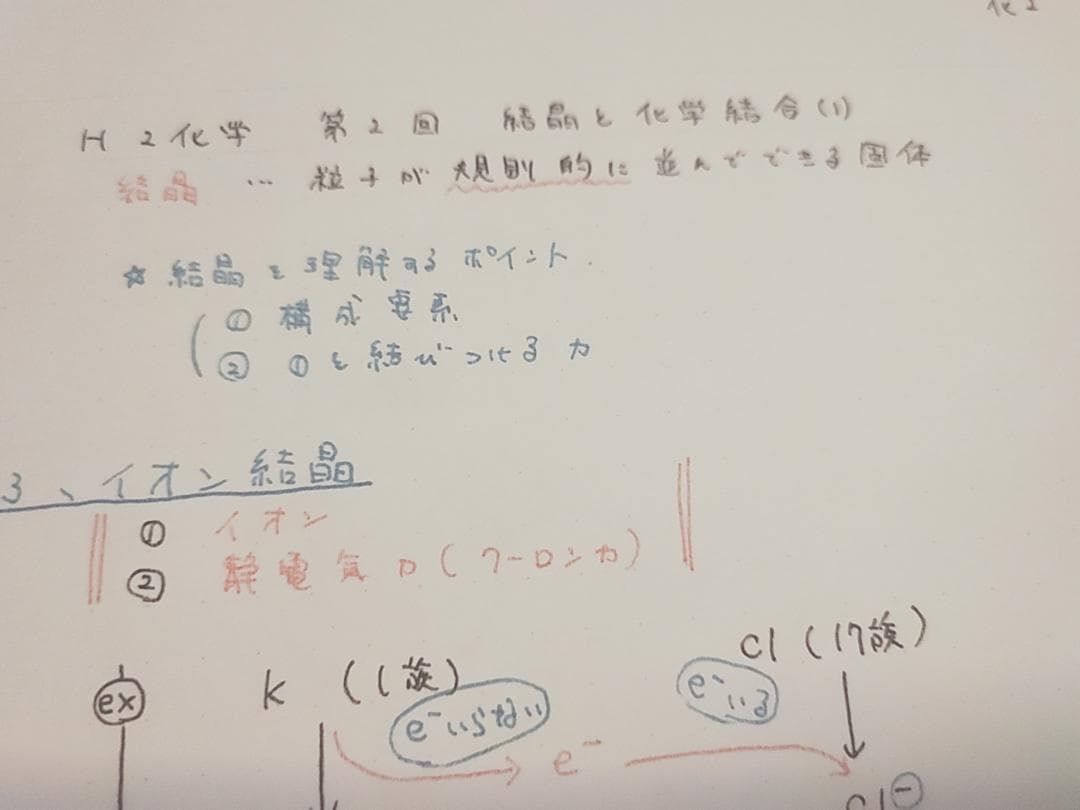 化2
H2化学 第2回 結晶と化学結合(1)
結晶 … 粒子が規則的に並んでできる固体
☆結晶を理解するポイント.
① 構成要素
② ①を結びつける力
3、イオン結晶
① イオン
② 静電気力(クーロン力)
ex K (1族) Cl (17族)
e⁻いらない e⁻いる
e⁻
Cl⊖